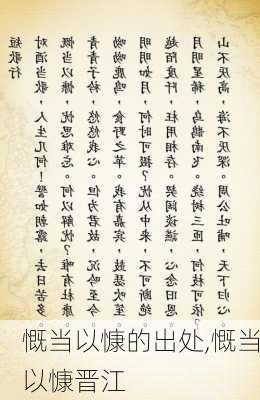 短歌行
对酒当歌,人生几何!譬如朝露,去日苦多。
慨当以慷,忧思难忘。何以解忧?唯有杜康。
青青子衿,悠悠我心。但为君故,沉吟至今。
呦呦鹿鸣,食野之苹。我有嘉宾,鼓瑟吹笙。
明明如月,何时可掇?忧从中来,不可断绝。
越陌度阡,枉用相存。契阔谈讌,心念旧恩。
月明星稀,乌鹊南飞。绕树三匝,何枝可依?
山不厌高,海不厌深。周公吐哺,天下归心。
慨当以慷的出处,慨当
以慷晋江